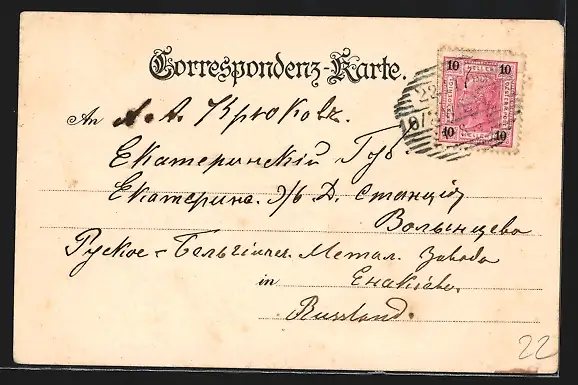 Correspondenz-Karte.
An А. А. Крюковъ.
Екатеринскій Губ
Екатерине. Э/б. Д. Станція
Волынцево
Руское-Бельгійск. Метал. Завода
in Енакіево.
Russland.
10 10
10 10
22